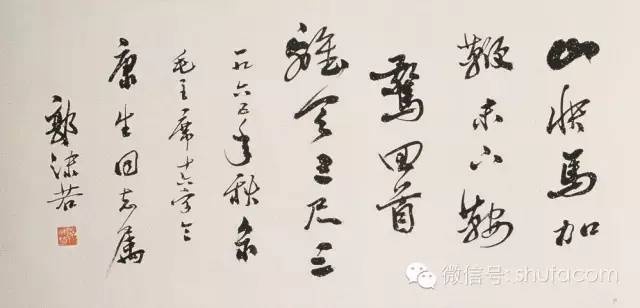 山快馬加
鞭未下鞍
驚回首
離天三尺三
一九六五年秋录
毛主席十六字令
康生同志属
郭沫若
微信号: shufacom